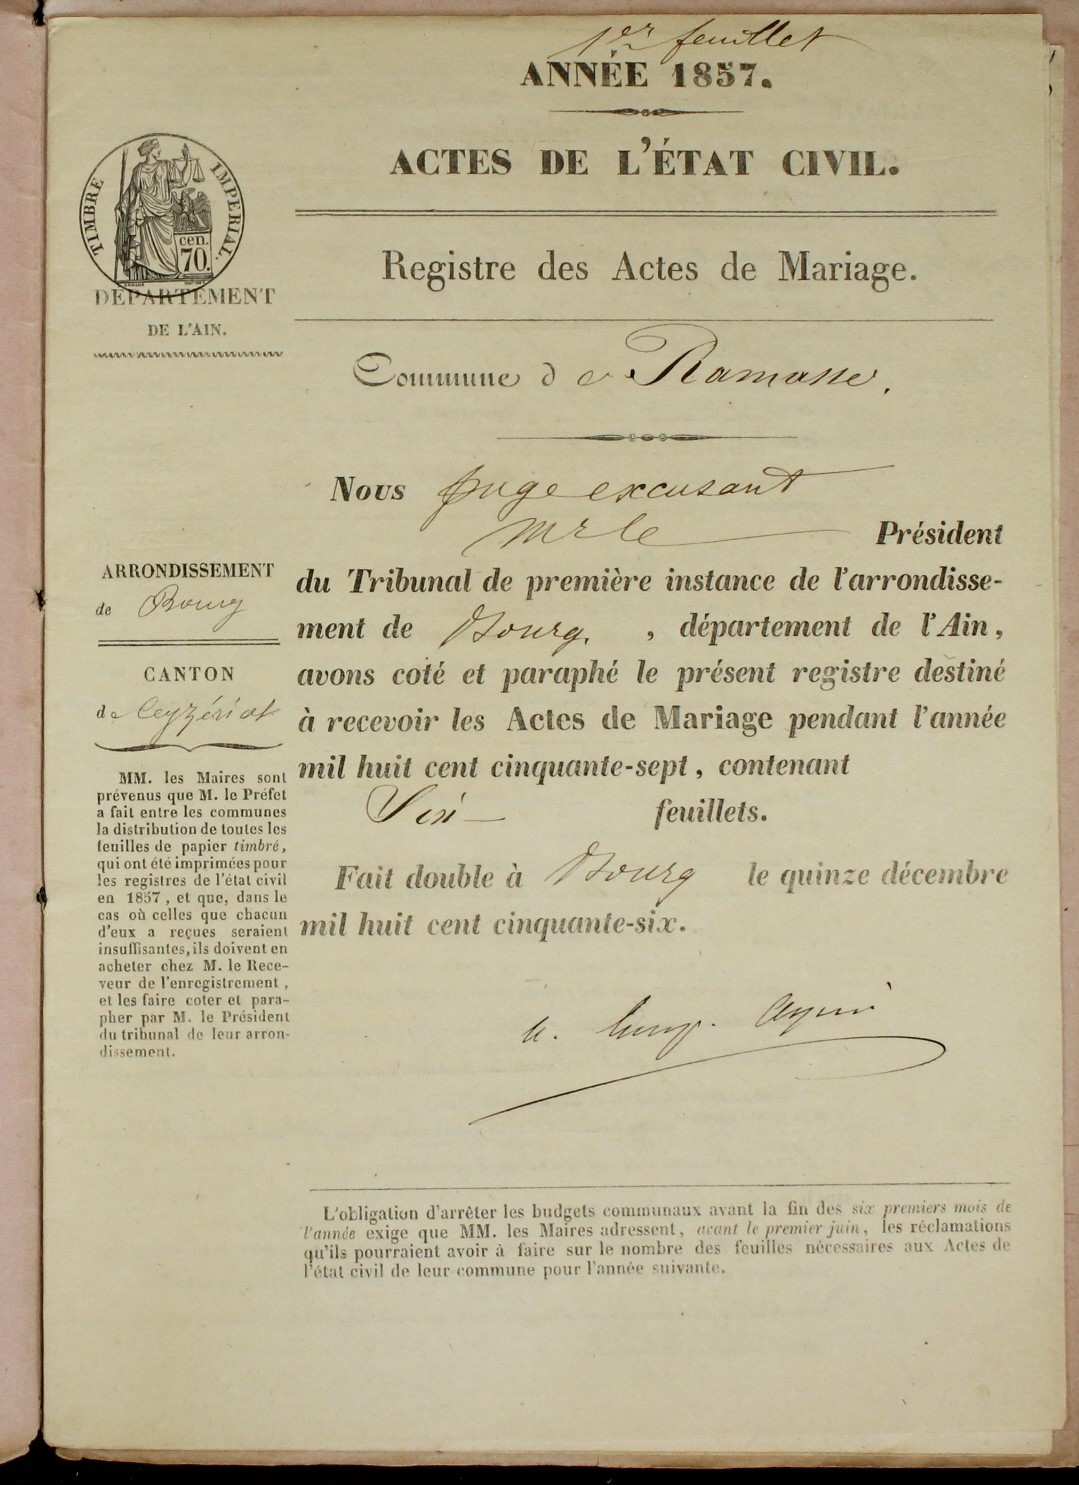 1er feuillet
ANNÉE 1857.
ACTES DE L'ÉTAT CIVIL.
TIMBRE IMPERIAL.
cen.
70.
DÉPARTEMENT
DE L'AIN.
Registre des Actes de Mariage.
Commune de Ramasse.
ARRONDISSEMENT
de Bourg
CANTON
de Ceyzériat
MM. les Maires sont
prévenus que M. le Préfet
a fait entre les communes
la distribution de toutes les
feuilles de papier timbré,
qui ont été imprimées pour
les registres de l'état civil
en 1857, et que, dans le
cas où celles que chacun
d'eux a reçues seraient
insuffisantes, ils doivent en
acheter chez M. le Rece-
veur de l'enregistrement,
et les faire coter et para-
pher par M. le Président
du tribunal de leur arron-
dissement.
Nous juge excusant
Mr le Président
du Tribunal de première instance de l'arrondisse-
ment de Bourg, département de l'Ain,
avons coté et paraphé le présent registre destiné
à recevoir les Actes de Mariage pendant l'année
mil huit cent cinquante-sept, contenant
Six feuillets.
Fait double à Bourg le quinze décembre
mil huit cent cinquante-six.
L'obligation d'arrêter les budgets communaux avant la fin des six premiers mois de
l'année exige que MM. les Maires adressent, avant le premier juin, les réclamations
qu'ils pourraient avoir à faire sur le nombre des feuilles nécessaires aux Actes de
l'état civil de leur commune pour l'année suivante.